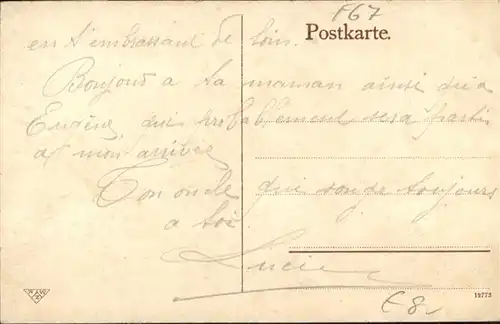 F67
Postkarte.
en t'embrassant de loin.
Bonjour a ta maman ainsi qu'a
Eugène, qui probablement sera parti
a mon arrivée
Ton oncle qui songe toujours
a toi
Lucien
19773
€ 8,-